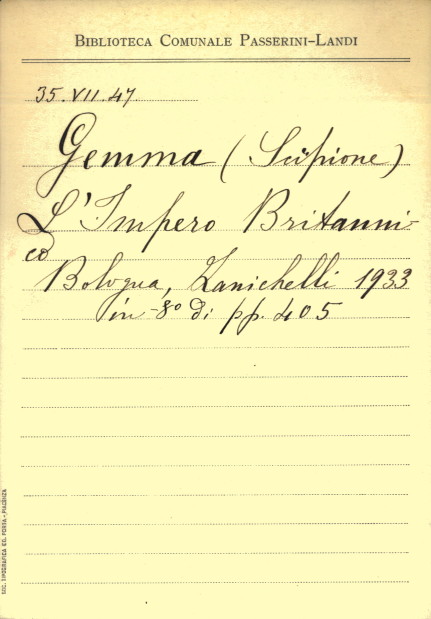 BIBLIOTECA COMUNALE PASSERINI-LANDI
35.VII.47
Gemma (Scipione)
L'Impero Britanni-
co
Bologna, Zanichelli 1933
in-8º di pp. 405
SOC. TIPOGRAFICA ED. PORTA - PIACENZA